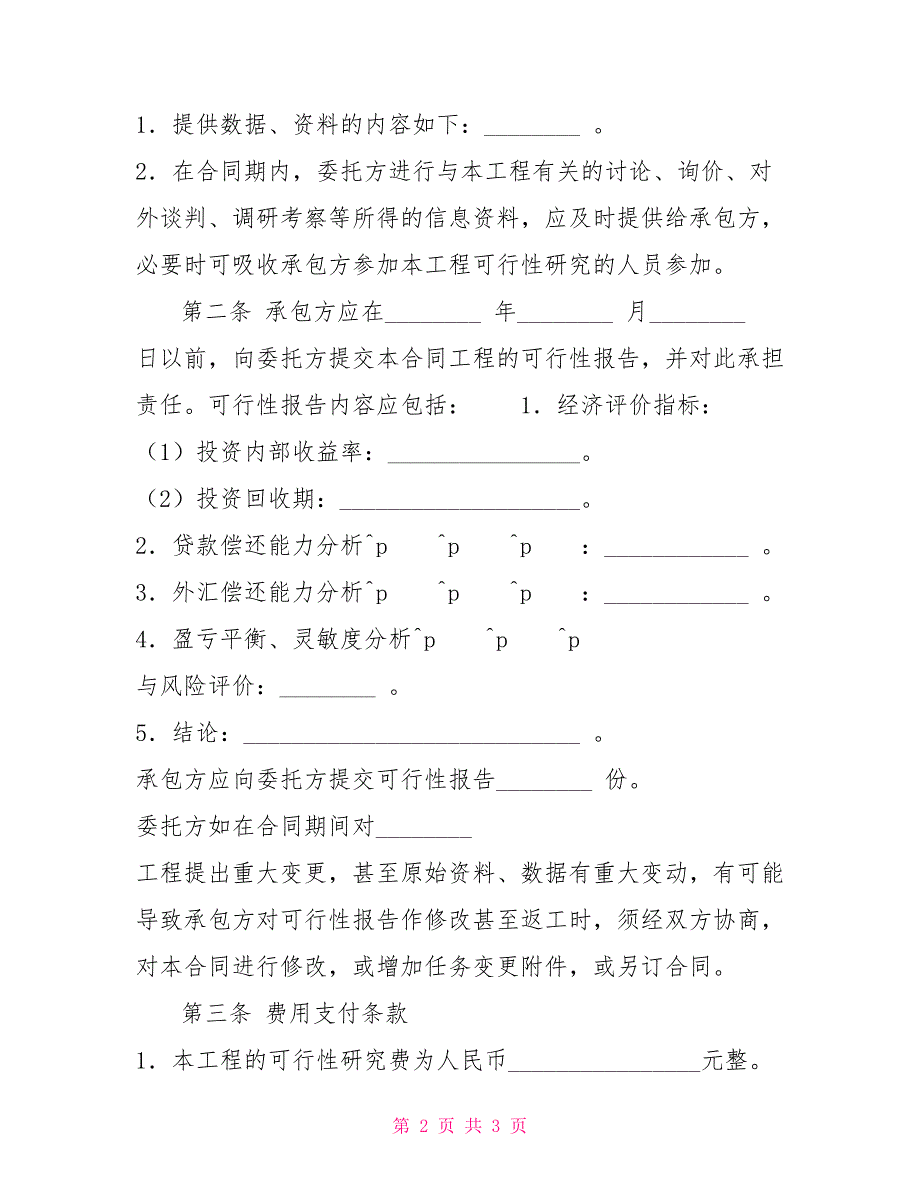 1．提供数据、资料的内容如下：________ 。
2．在合同期内，委托方进行与本工程有关的讨论、询价、对
外谈判、调研考察等所得的信息资料，应及时提供给承包方，
必要时可吸收承包方参加本工程可行性研究的人员参加。
第二条 承包方应在________ 年________ 月________
日以前，向委托方提交本合同工程的可行性报告，并对此承担
责任。可行性报告内容应包括： 1．经济评价指标：
（1）投资内部收益率：________________。
（2）投资回收期：____________________。
2．贷款偿还能力分析^p ^p ^p ：____________ 。
3．外汇偿还能力分析^p ^p ^p ：____________ 。
4．盈亏平衡、灵敏度分析^p ^p ^p
与风险评价：________ 。
5．结论：____________________________ 。
承包方应向委托方提交可行性报告________ 份。
委托方如在合同期间对________
工程提出重大变更，甚至原始资料、数据有重大变动，有可能
导致承包方对可行性报告作修改甚至返工时，须经双方协商，
对本合同进行修改，或增加任务变更附件，或另订合同。
第三条 费用支付条款
1．本工程的可行性研究费为人民币________________元整。
第 2 页 共 3 页